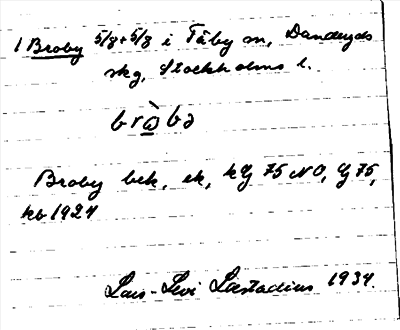 1 Broby 5/8+5/8 i Täby sn, Danderyds
skg, Stockholms l.
bròbə
Broby bek, ek, kg 75 NO, g 75,
kb 1924
Lars-Levi Læstadius 1934.